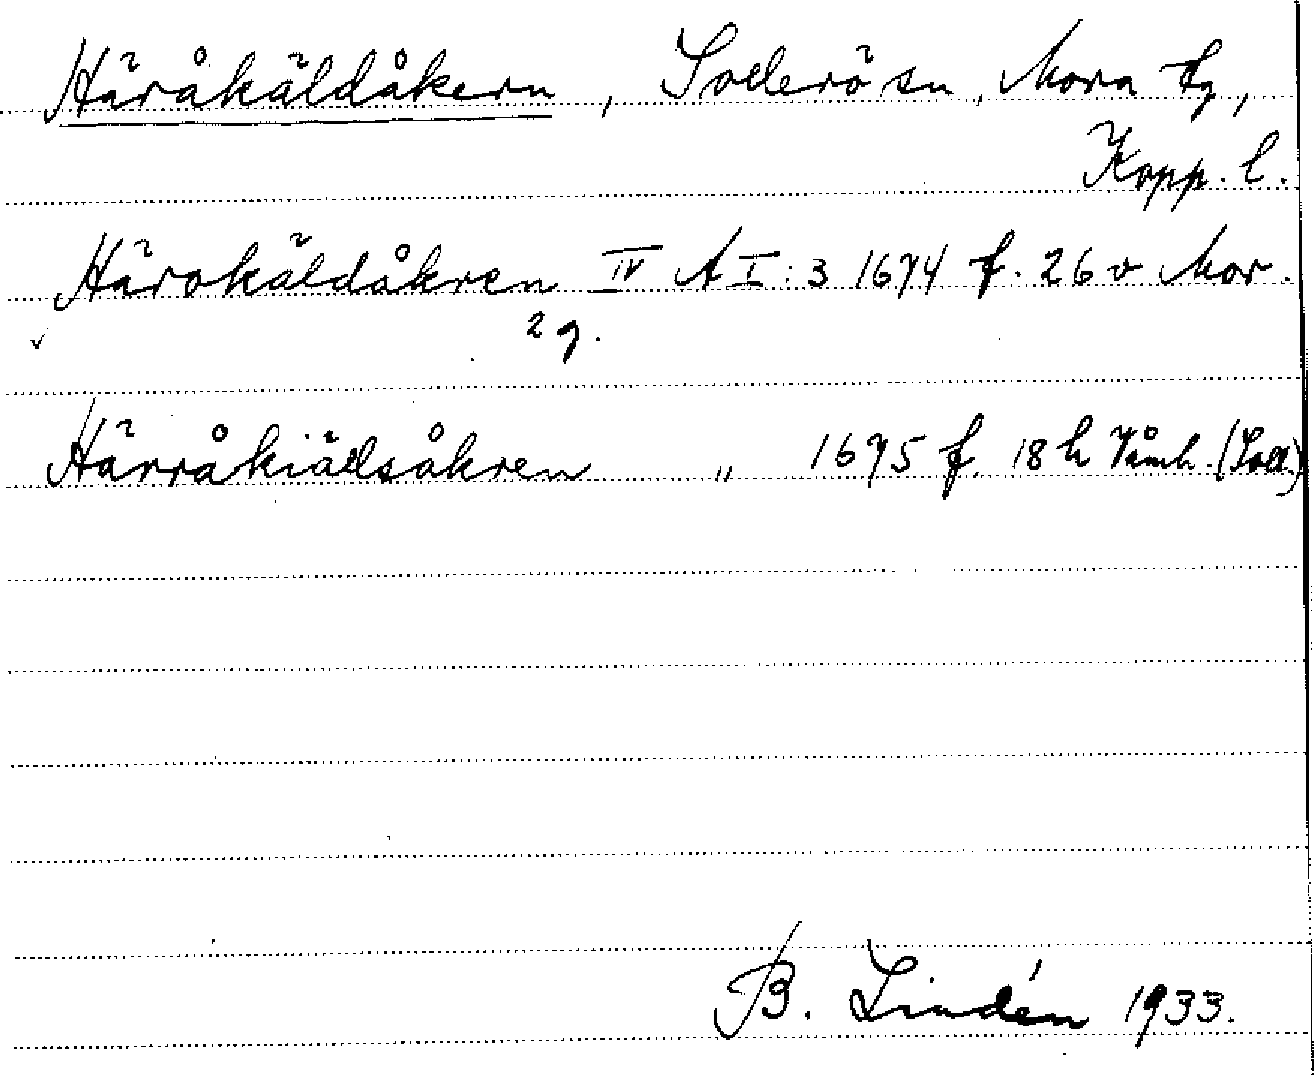 Häråkäldåkern, Sollerö sn, Mora tg,
Kopp. l.
Härokäldåkren IV A I:3 1674 f. 26 v Mor.
2 g.
Härråkiädsåkren " 1675 f. 18 h Våmh. (Soll.)
B. Lindén 1933.